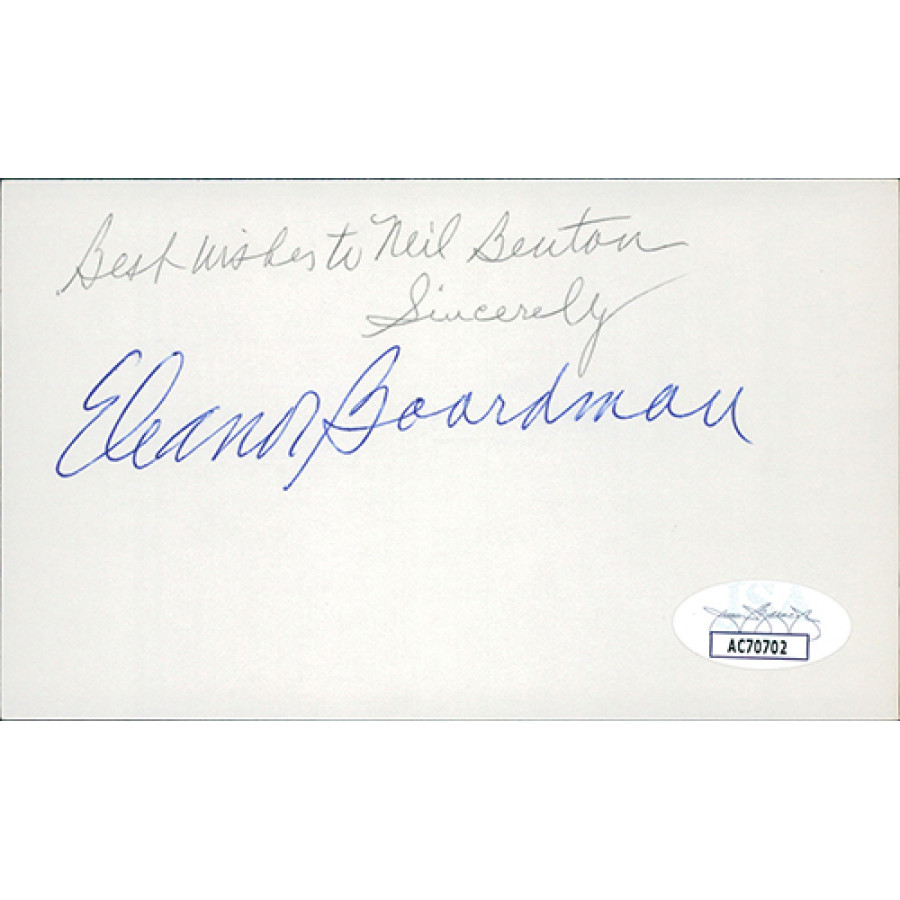 Best wishes to Neil Benton
Sincerely
Eleanor Boardman
JSA
AC70702